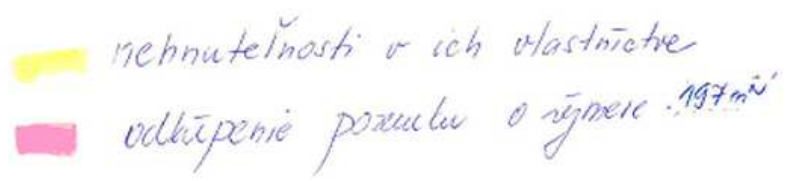 nehnuteľnosti v ich vlastníctve
odkúpenie pozemku o výmere 197 m²